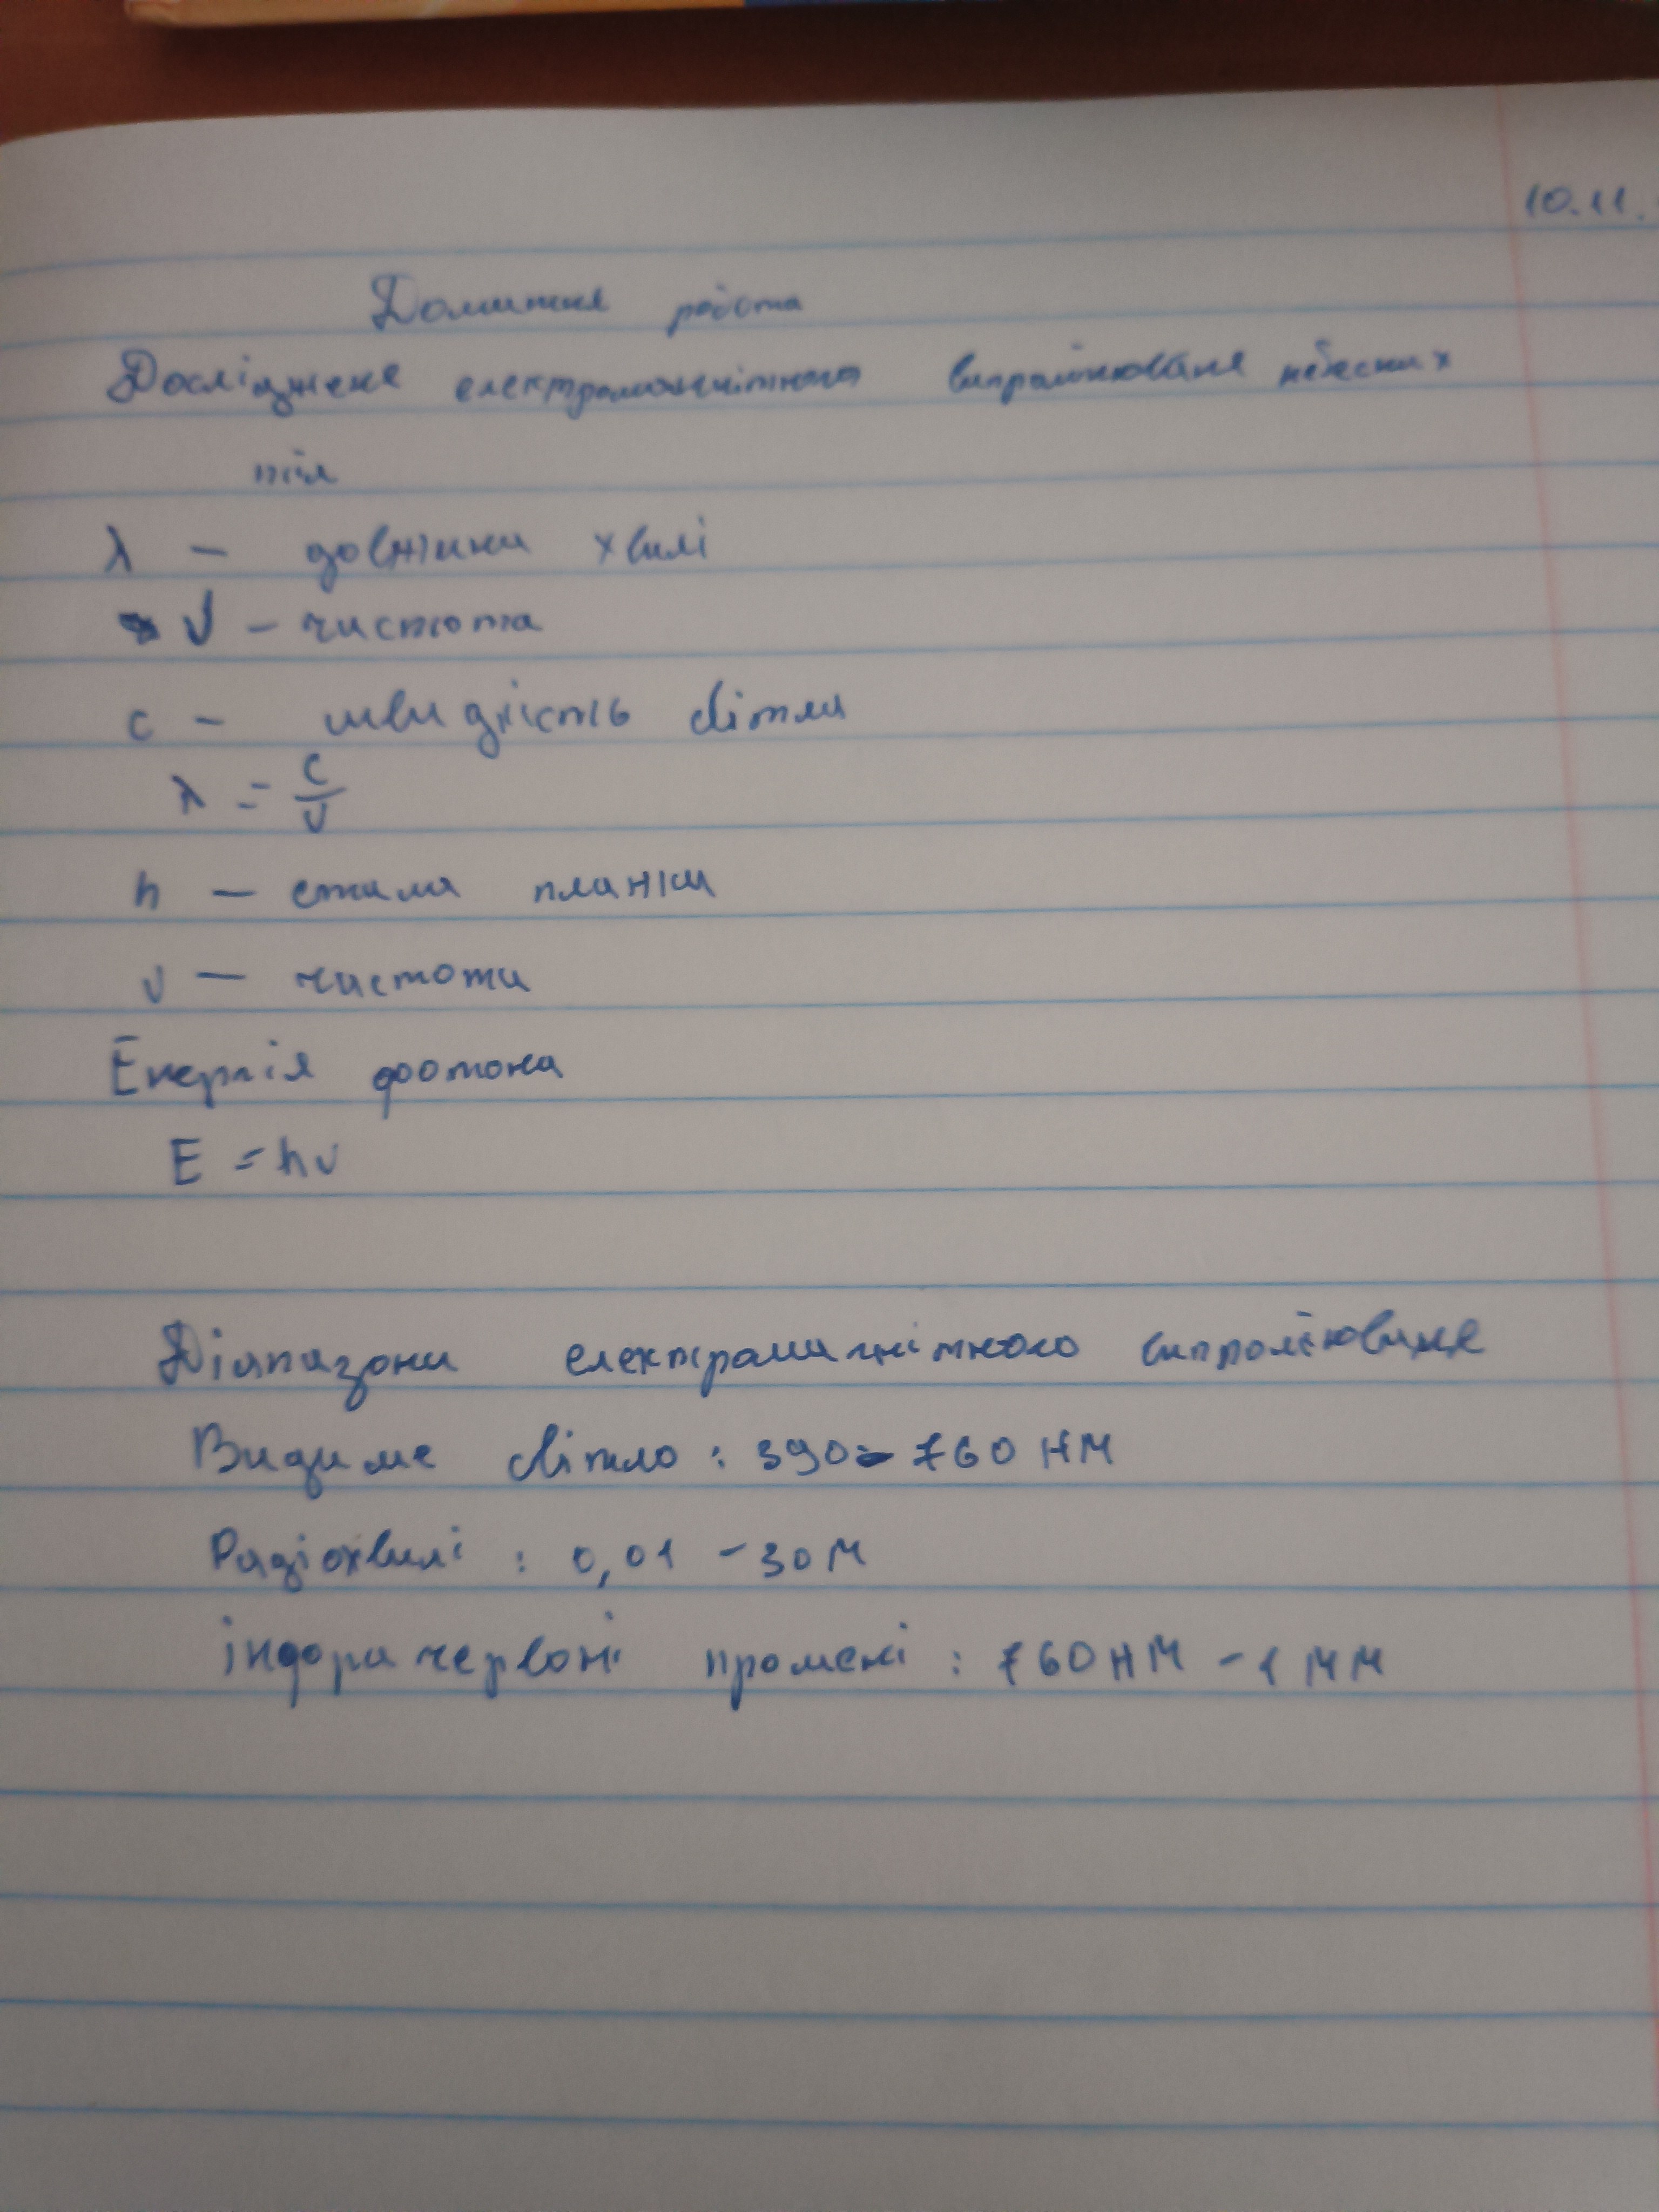 10.11.
Домашня робота
Досліджене електромагнітного випромінюване небесних
тіл
λ – довжина хвилі
ν – частота
c – швидкість світла
λ = c/ν
h – стала планка
ν – частота
Енергія фотона
E = hν
Діапазони електромагнітного випромінюване
Видиме світло : 390 - 760 нм
Радіохвилі : 0,01 - 30 м
інфрачервоні промені : 760 нм - 1 мм